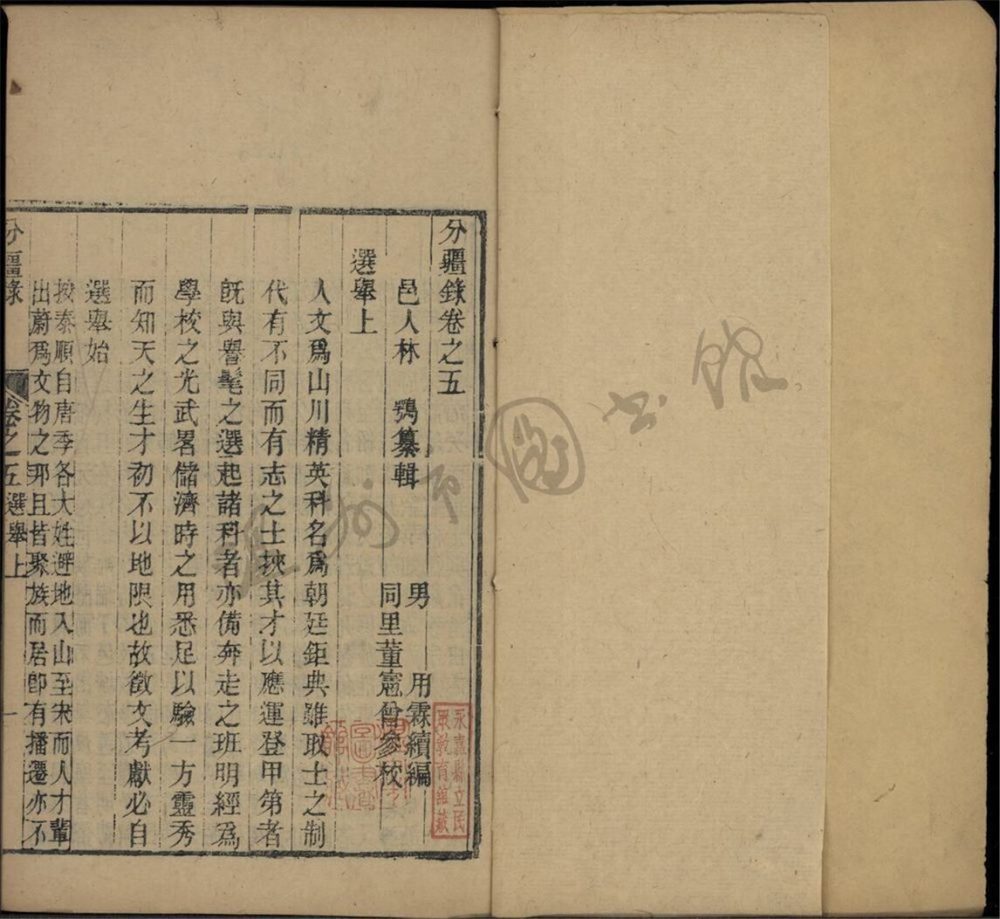 分疆錄卷之五
邑人林　鶚纂輯
男　用霖續編
同里董憲曾參校
選舉上
人文爲山川精英科名爲朝廷鉅典雖取士之制
代有不同而有志之士挾其才以應運登甲第者
旣與譽髦之選起諸科者亦備奔走之班明經爲
學校之光武畧儲濟時之用悉足以驗一方靈秀
而知天之生才初不以地限也故徵文考獻必自
選舉始
按泰順自唐季各大姓避地入山至宋而人才輩
出蔚爲文物之邦且皆聚族而居卽有播遷亦不
分疆錄　卷之五　選舉上　一
永嘉縣立民
眾教育館藏
市圖書館